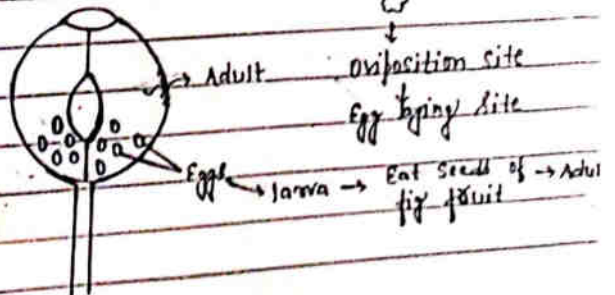 Adult
Oviposition site
Egg laying site
Eggs → larva → Eat seeds of → Adul
fig fruit